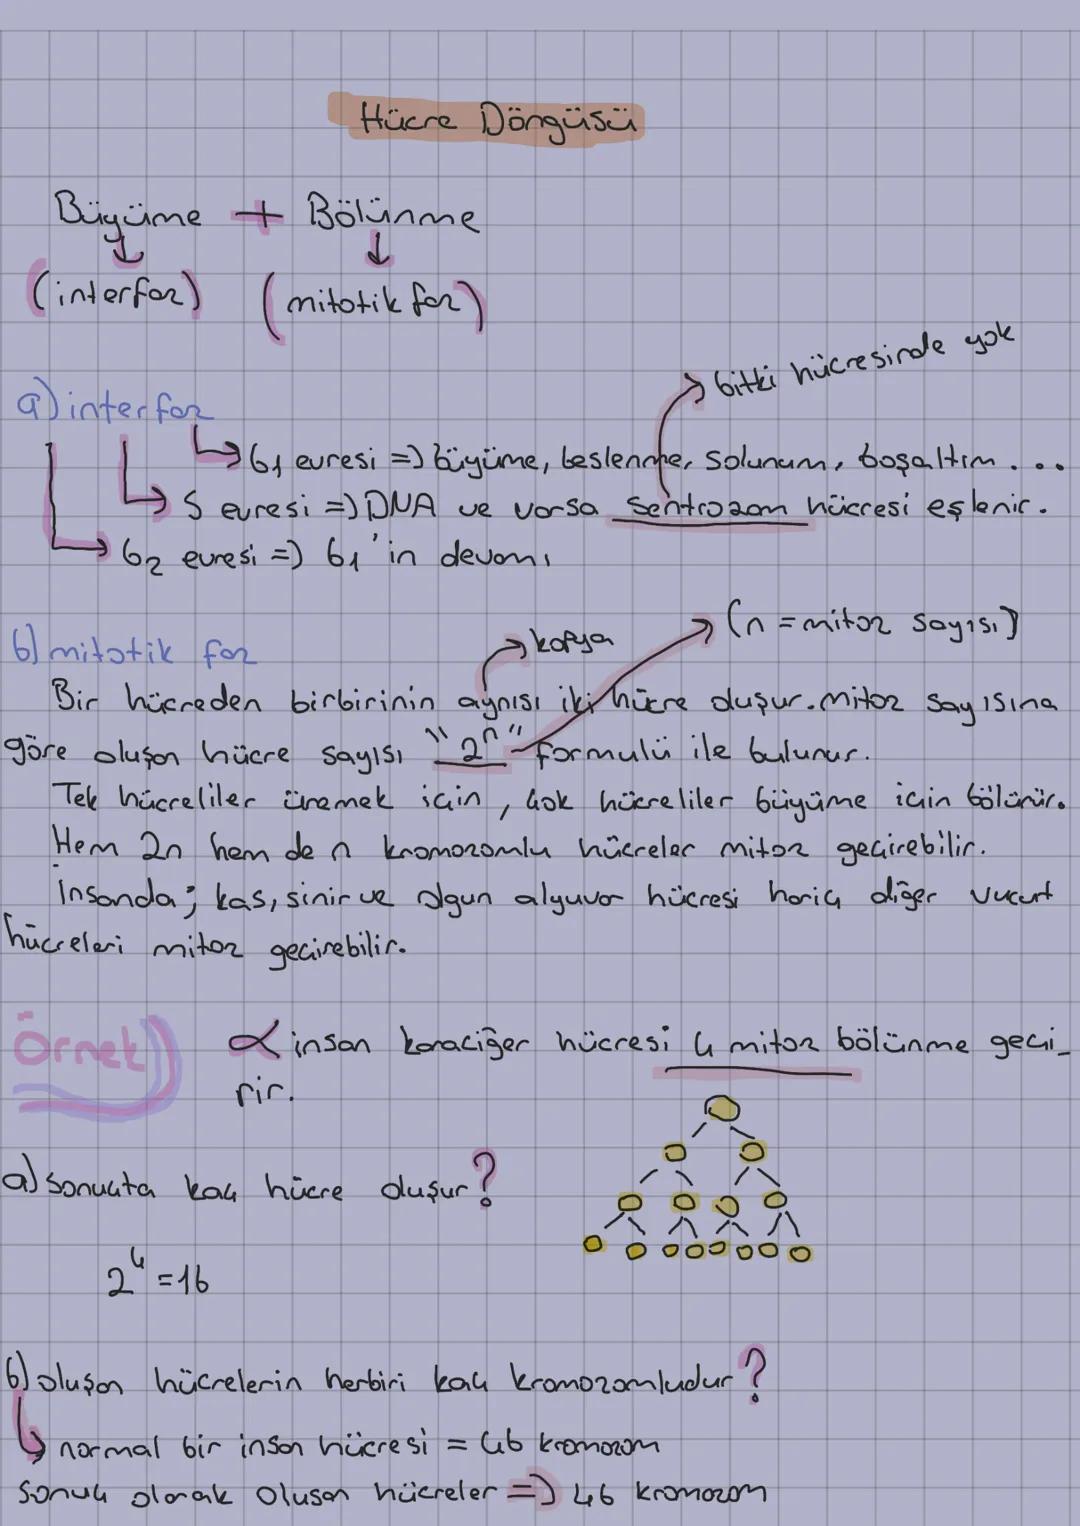 Hücre Döngüsü
Büyüme + Bölünme
(interfaz) (mitotik faz)
bitki hücresinde yok
a) interfaz
G1 evresi => büyüme, beslenme, solunum, boşaltım...
S evresi => DNA ve varsa sentrozom hücresi eşlenir.
G2 evresi => G1'in devamı
(n = mitoz sayısı)
b) mitotik faz
kopya
Bir hücreden birbirinin aynısı iki hücre oluşur. Mitoz sayısına
göre oluşan hücre sayısı "2ⁿ" formulü ile bulunur.
Tek hücreliler üremek için, çok hücreliler büyüme için bölünür.
Hem 2n hem de n kromozomlu hücreler mitoz geçirebilir.
İnsanda; kas, sinir ve olgun alyuvar hücresi hariç diğer vucut
hücreleri mitoz geçirebilir.
Örnek) α insan karaciğer hücresi 4 mitoz bölünme geçi_
rir.
a) sonuçta kaç hücre oluşur?
2⁴ = 16
b) oluşan hücrelerin herbiri kaç kromozomludur?
normal bir insan hücresi = 46 kromozom
sonuç olarak oluşan hücreler => 46 kromozom